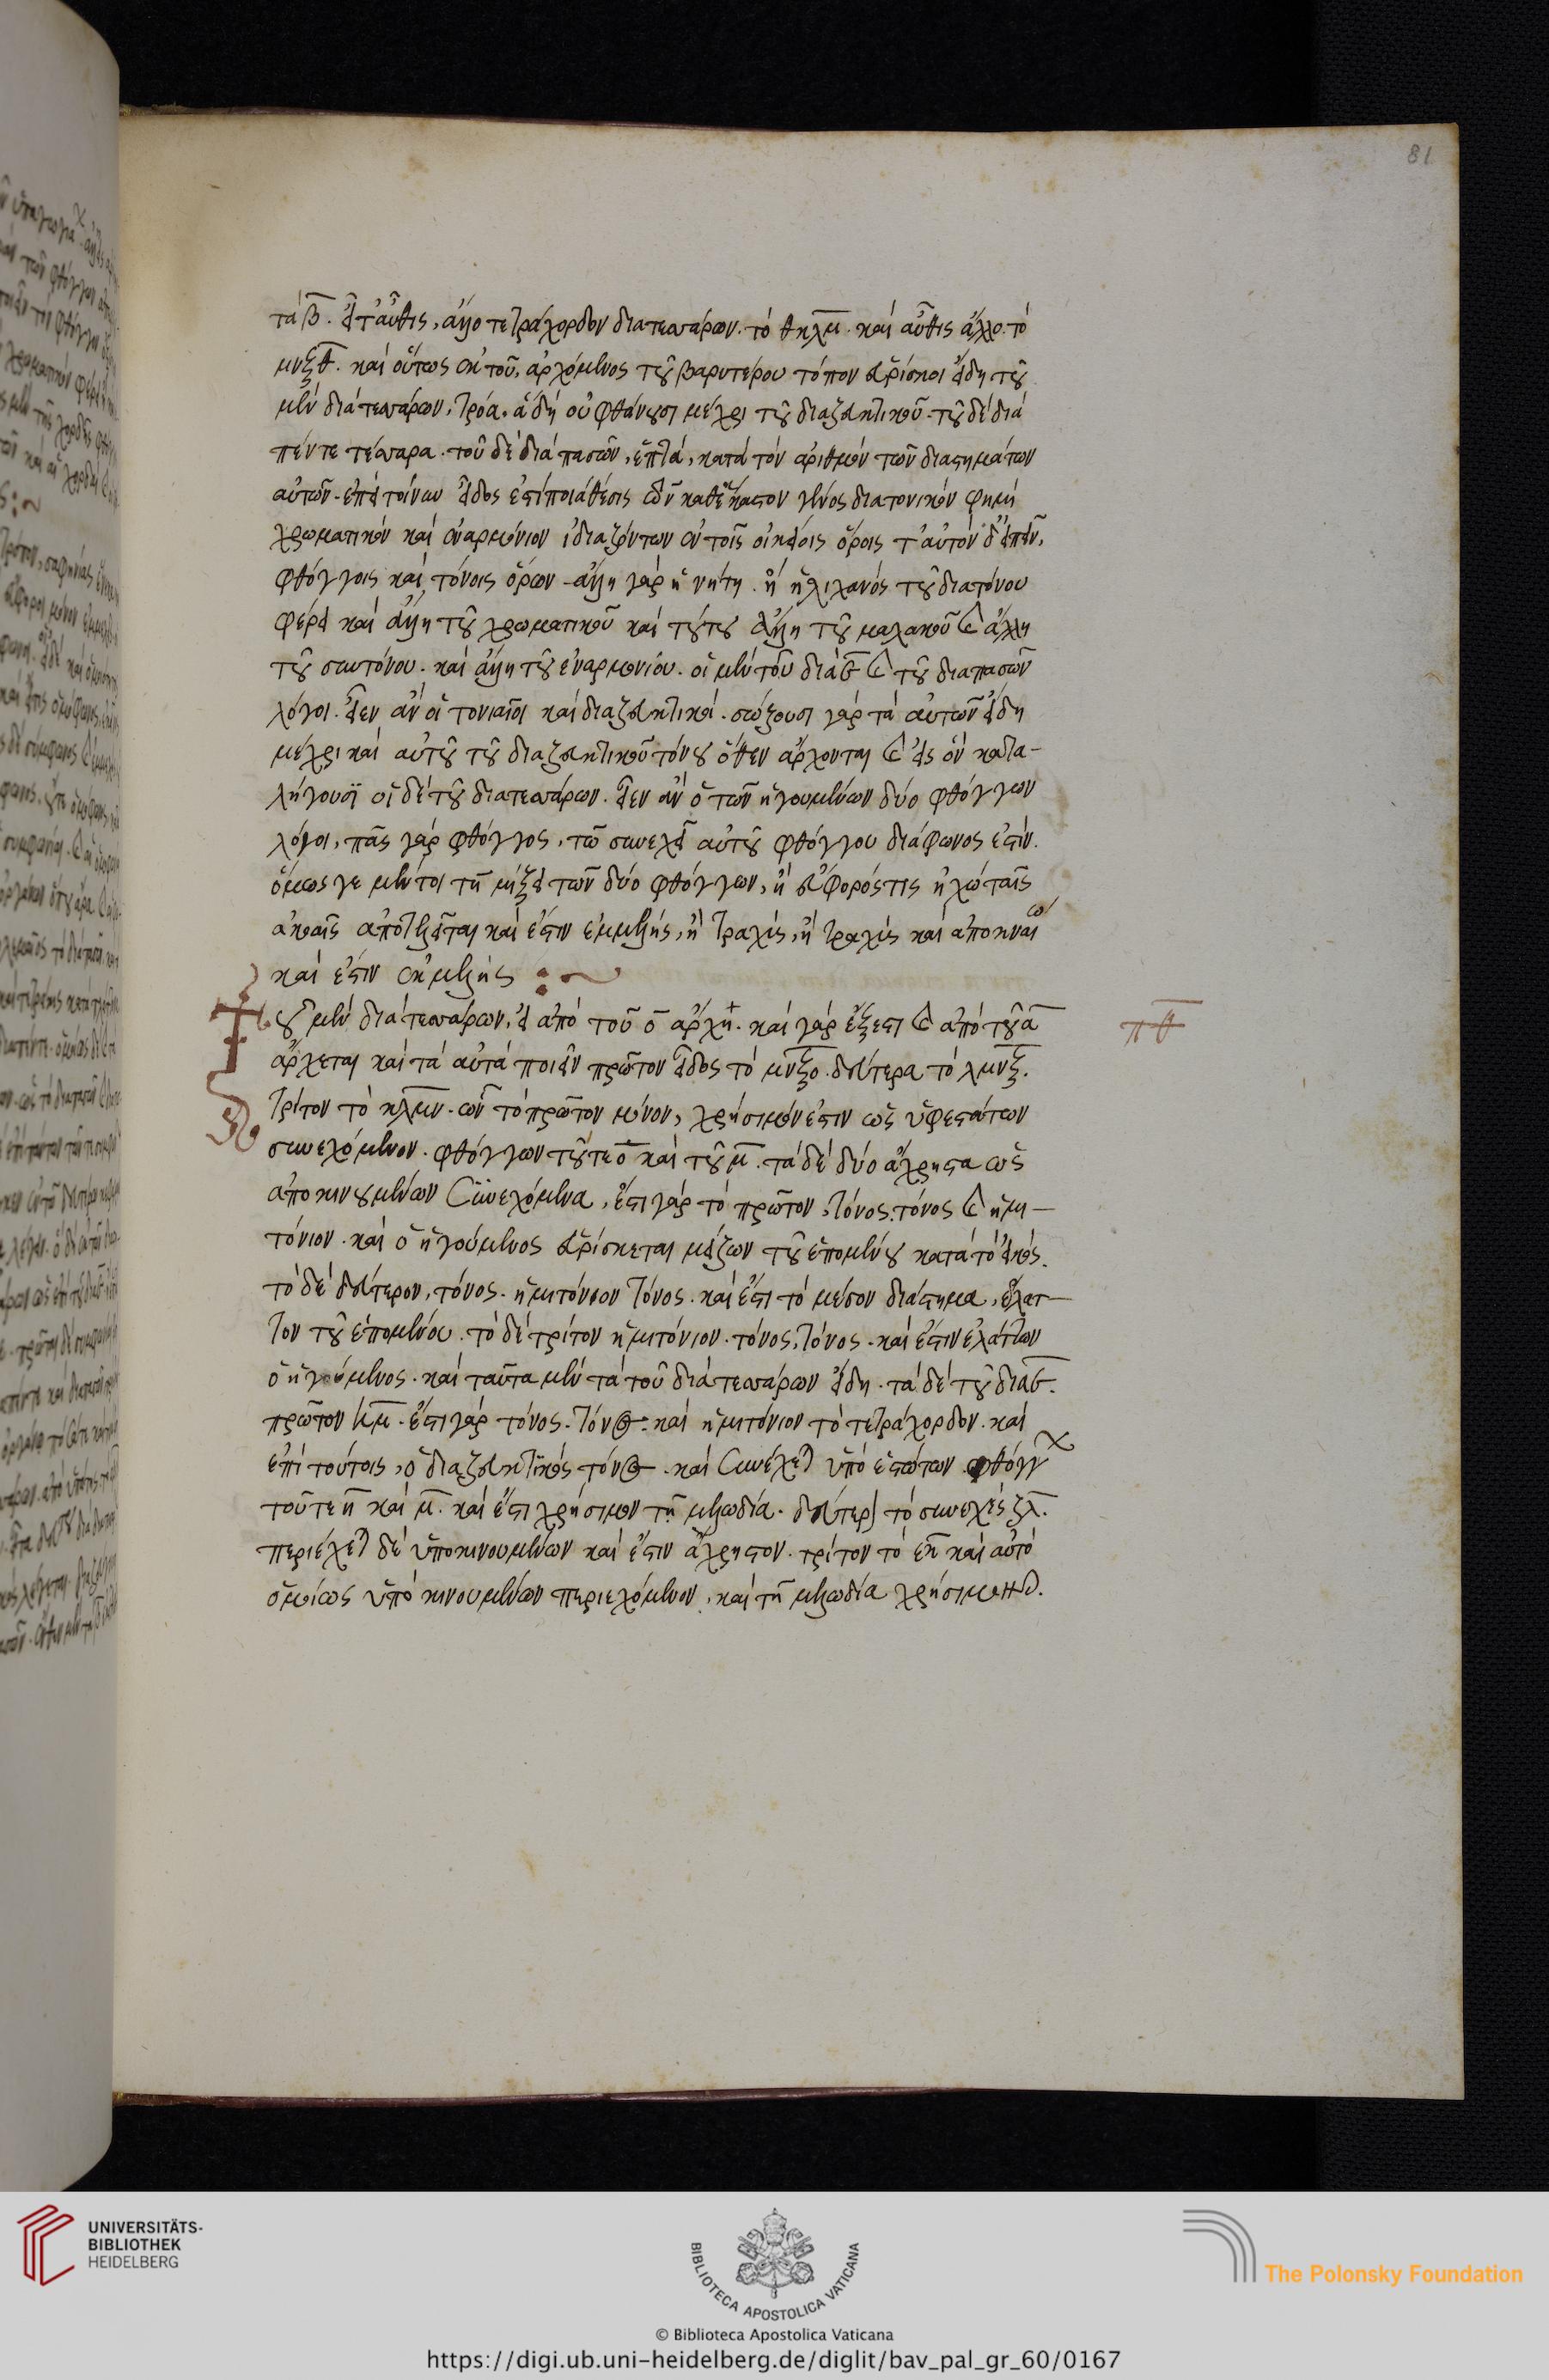 81
τὰ β̅. εἶτ' αὖθις, ἄλλο τετράχορδον διατεσσάρων. τὸ θκλμ̅. καὶ αὖθις ἄλλο. τὸ
μνξθ̅. καὶ οὕτως ἐκ τοῦ, ἀρχόμενος τοῦ βαρυτέρου τόπον εὑρίσκοι εἴδη τοῦ
μὲν διὰ τεσσάρων, τρία. ἃ δὴ οὐ φθάνουσι μέχρι τοῦ διαζευκτικοῦ. τοῦ δὲ διὰ
πέντε τέσσαρα. τοῦ δὲ διὰ πασῶν, ἑπτὰ, κατὰ τὸν ἀριθμὸν τῶν διαστημάτων
αὐτῶν. ἐπεὶ τοίνυν εἶδος ἐστὶ ποιὰ θέσις τῶν καθ' ἕκαστον γένος διατονικὸν φημὶ
χρωματικὸν καὶ ἐναρμόνιον ἰδιαζόντων ἐν τοῖς οἰκείοις ὅροις ταὐτὸν δ' εἰπεῖν,
φθόγγοις καὶ τόνοις ὅρων. ἄλλη γὰρ ἡ νήτη. ἢ ἡ λιχανός τοῦ διατόνου
φέρει καὶ ἄλλη τοῦ χρωματικοῦ καὶ τούτου ἄλλη τοῦ μαλακοῦ καὶ ἄλλη
τοῦ συντόνου. καὶ ἄλλη τοῦ ἐναρμονίου. οἱ μὲν τοῦ διὰ ε̅ καὶ τοῦ διαπασῶν
λόγοι. εἶεν ἂν οἱ τονιαῖοι καὶ διαζευκτικοί. σώζουσι γὰρ τὰ αὐτῶν εἴδη
μέχρι καὶ αὐτοῦ τοῦ διαζευκτικοῦ τόνου ὅθεν ἄρχονται καὶ εἰς ὃν κατα-
λήγουσι οἱ δὲ τοῦ διατεσσάρων. εἶεν ἂν ὁ τῶν ἡγουμένων δύο φθόγγων
λόγοι, πᾶς γὰρ φθόγγος, τῶ συνεχεῖ αὐτοῦ φθόγγου διάφωνος ἐστίν.
ὅμως γε μέντοι τῆ μίξει τῶν δύο φθόγγων, ἢ εὔφορός τις ἠχὼ ταῖς
ἀκοαῖς ἀποτελεῖται καὶ ἔστιν ἐμμελής, ἢ τραχὺς, ἢ τραχὺς καὶ ἀποκναίω
καὶ ἔστιν ἐκμελής :~
Τοῦ μὲν διὰ τεσσάρων, εἰ ἀπὸ τοῦ ο̅ ἀρχὴ. καὶ γὰρ ἔξεστι καὶ ἀπὸ τοῦ α̅
πθ̅
ἄρχεται καὶ τὰ αὐτὰ ποιεῖν πρῶτον εἶδος τὸ μνξο̅. δεύτερα τὸ λμνξ̅.
τρίτον τὸ κλμν̅. ὧν τὸ πρῶτον μόνον, χρήσιμόν ἐστιν ὡς ὑφεστώτων
συνεχόμενον. φθόγγων τοῦ τε ο̅ καὶ τοῦ μ̅. τὰ δὲ δύο ἄχρηστα ὡς
ἀποκινουμένων συνεχόμενα, ἔστι γὰρ τὸ πρῶτον, τόνος. τόνος καὶ ἡμι-
τόνιον. καὶ ὁ ἡγούμενος εὑρίσκεται μείζων τοῦ ἑπομένου κατὰ τὸ εἰκός.
τὸ δὲ δεύτερον, τόνος. ἡμιτόνιον τόνος. καὶ ἔστι τὸ μέσον διάστημα, ἔλατ-
τον τοῦ ἑπομένου. τὸ δὲ τρίτον ἡμιτόνιον. τόνος, τόνος. καὶ ἔστιν ἐλάττων
ὁ ἡγούμενος. καὶ ταῦτα μὲν τὰ τοῦ διὰ τεσσάρων εἴδη. τὰ δὲ τοῦ διὰ ε̅.
πρῶτον ημ̅. ἔστι γὰρ τόνος. τόνος. καὶ ἡμιτόνιον τὸ τετράχορδον. καὶ
ἐπὶ τούτοις, ὁ διαζευκτικός τόνος. καὶ συνέχεται ὑπὸ ἑστώτων φθόγγων
τοῦ τε η̅ καὶ μ̅. καὶ ἔστι χρήσιμον τῆ μελωδία. δεύτερον τὸ συνεχὲς ζλ̅.
περιέχεται δὲ ὑποκινουμένων καὶ ἔστιν ἄχρηστον. τρίτον τὸ εκ̅ καὶ αὐτὸ
ὁμοίως ὑπὸ κινουμένων περιεχόμενον, καὶ τῆ μελωδία χρήσιμον.
UNIVERSITÄTS-
BIBLIOTHEK
HEIDELBERG
BIBLIOTECA APOSTOLICA VATICANA
The Polonsky Foundation
© Biblioteca Apostolica Vaticana
https://digi.ub.uni-heidelberg.de/diglit/bav_pal_gr_60/0167